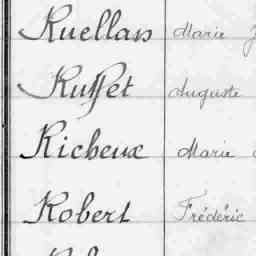 Ruellan Marie
Ruffet Auguste
Richeux Marie
Robert Frédéric